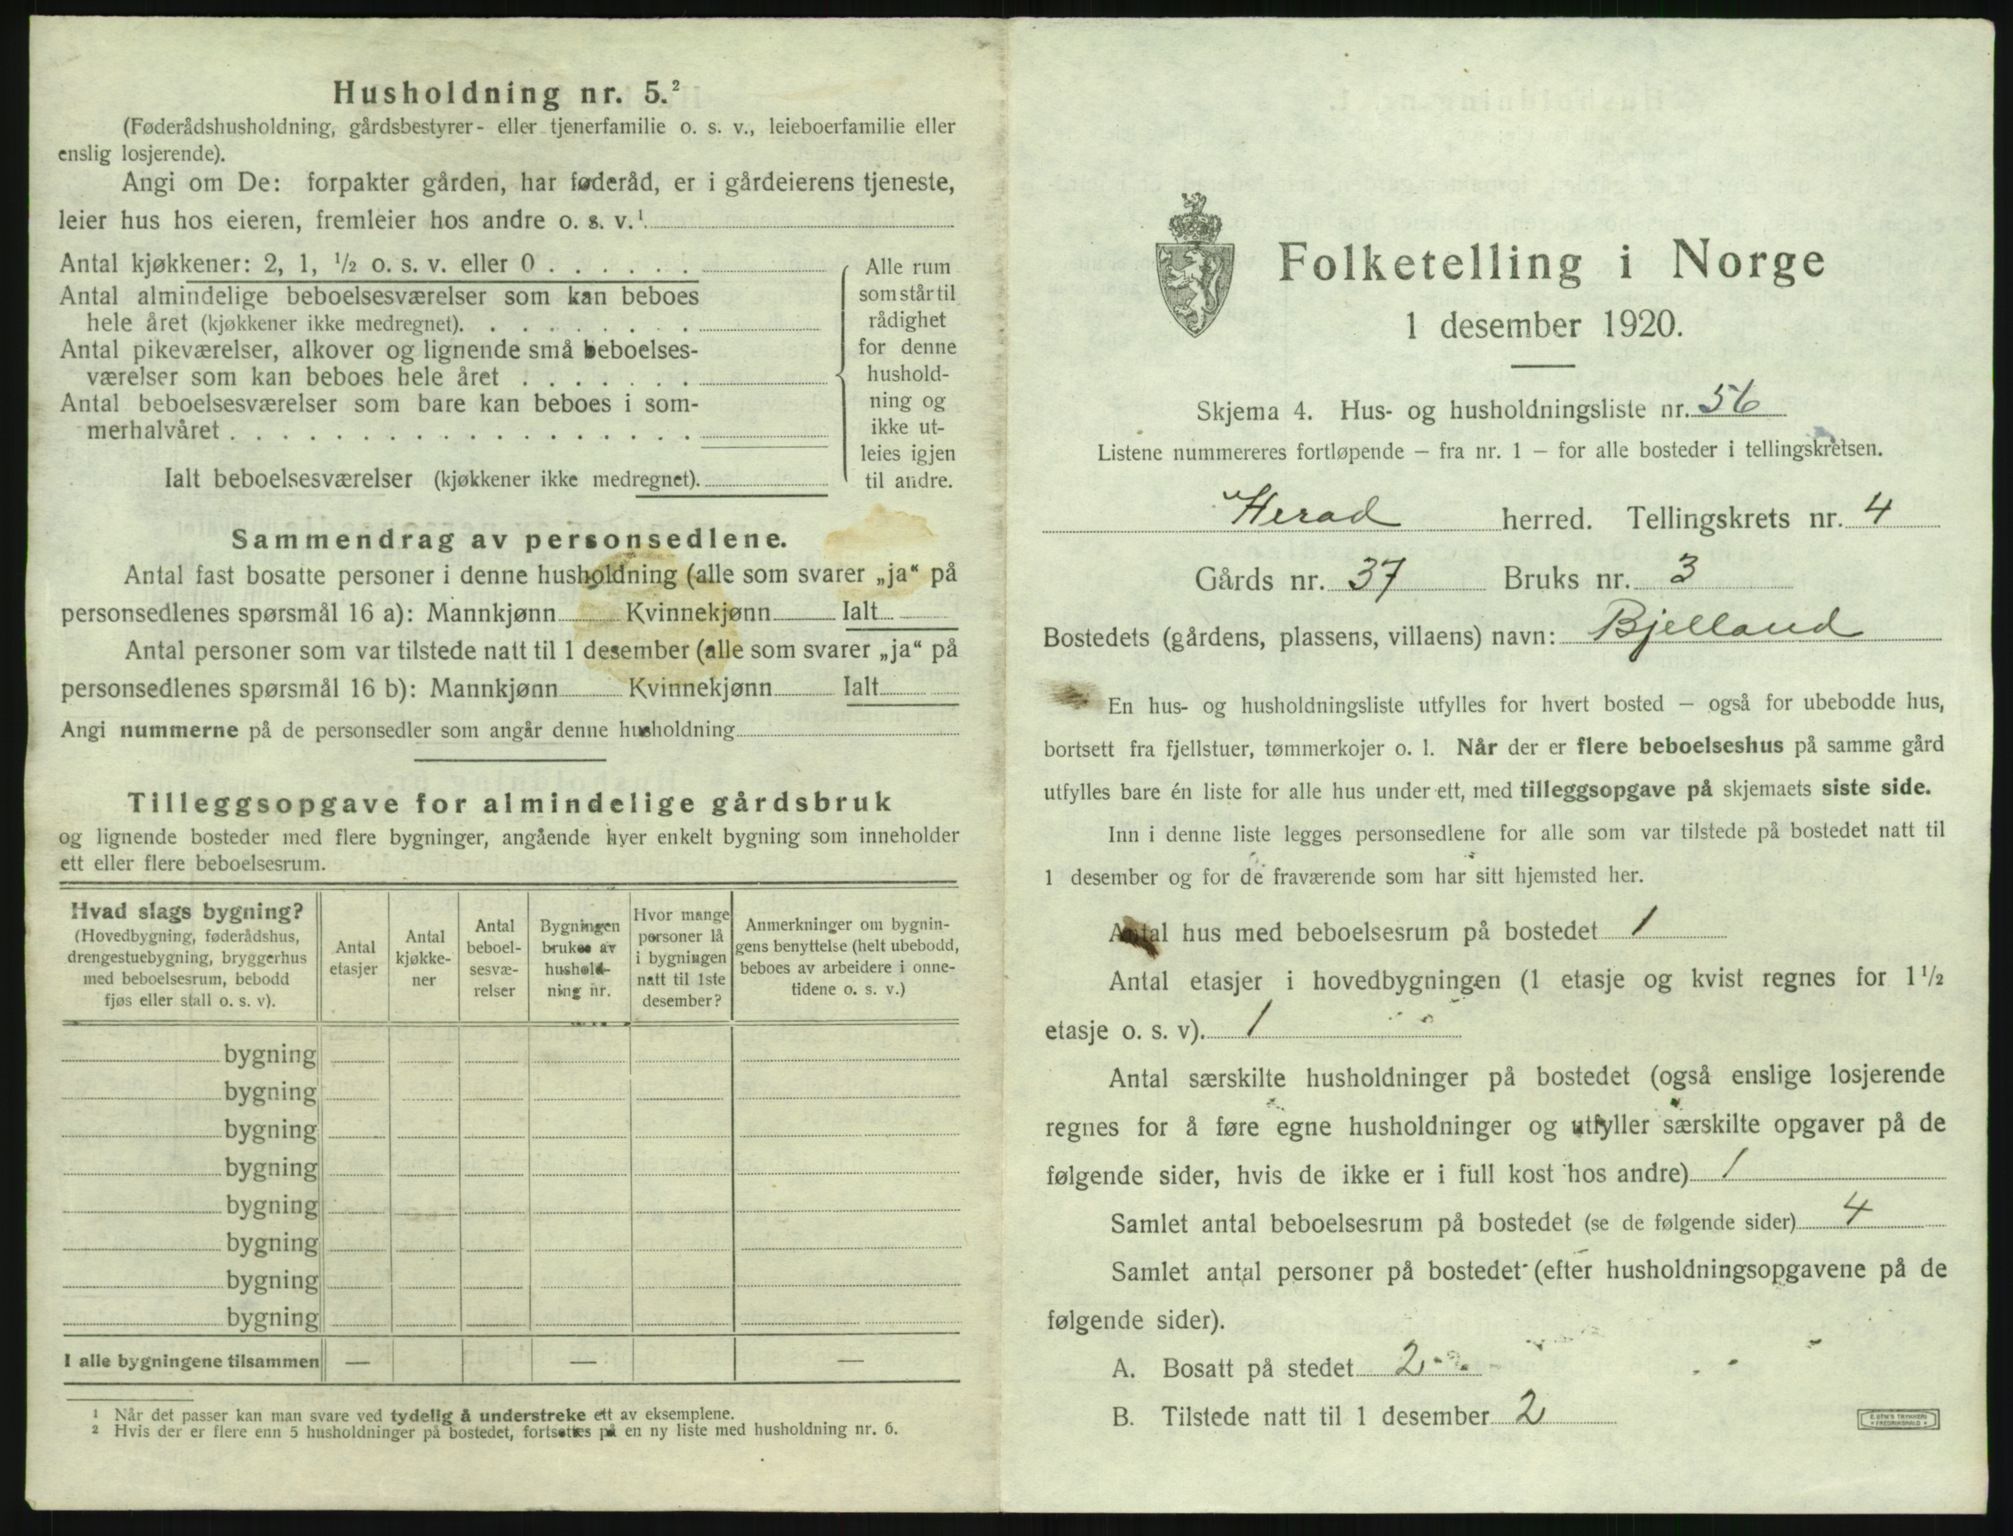 Husholdning nr. 5.²
(Føderådshusholdning, gårdsbestyrer- eller tjenerfamilie o. s. v., leieboerfamilie eller
enslig losjerende).
Angi om De: forpakter gården, har føderåd, er i gårdeierens tjeneste,
leier hus hos eieren, fremleier hos andre o. s. v.¹
Antal kjøkkener: 2, 1, ½ o. s. v. eller 0 . . . . . .
Antal almindelige beboelsesværelser som kan beboes
hele året (kjøkkener ikke medregnet). . . . . . . . .
Antal pikeværelser, alkover og lignende små beboelses-
værelser som kan beboes hele året . . . . . . .
Antal beboelsesværelser som bare kan beboes i som-
merhalvåret . . . . . . . . . . . . . . . . . .
Ialt beboelsesværelser (kjøkkener ikke medregnet).
Alle rum
som står til
rådighet
for denne
hushold-
ning og
ikke ut-
leies igjen
til andre.
Sammendrag av personsedlene.
Antal fast bosatte personer i denne husholdning (alle som svarer „ja“ på
personsedlenes spørsmål 16 a): Mannkjønn Kvinnekjønn Ialt
Antal personer som var tilstede natt til 1 desember (alle som svarer „ja“ på
personsedlenes spørsmål 16 b): Mannkjønn Kvinnekjønn Ialt
Angi nummerne på de personsedler som angår denne husholdning
Tilleggsopgave for almindelige gårdsbruk
og lignende bosteder med flere bygninger, angående hver enkelt bygning som inneholder
ett eller flere beboelsesrum.
Hvad slags bygning?
(Hovedbygning, føderådshus,
drengestuebygning, bryggerhus
med beboelsesrum, bebodd
fjøs eller stall o. s. v).
Antal
etasjer
Antal
kjøkke-
ner
Antal
beboel-
sesvæ-
relser
Bygningen
brukes av
hushold-
ning nr.
Hvor mange
personer lå
i bygningen
natt til 1ste
desember?
Anmerkninger om bygnin-
gens benyttelse (helt ubebodd,
beboes av arbeidere i onne-
tidene o. s. v.)
bygning
bygning
bygning
bygning
bygning
bygning
bygning
bygning
I alle bygningene tilsammen — — —
¹ Når det passer kan man svare ved tydelig å understreke ett av eksemplene.
² Hvis der er flere enn 5 husholdninger på bostedet, fortsættes på en ny liste med husholdning nr. 6.
Folketelling i Norge
1 desember 1920.
Skjema 4. Hus- og husholdningsliste nr. 56
Listene nummereres fortløpende – fra nr. 1 – for alle bosteder i tellingskretsen.
Herad herred. Tellingskrets nr. 4
Gårds nr. 37 Bruks nr. 3
Bostedets (gårdens, plassens, villaens) navn: Bjelland
En hus- og husholdningsliste utfylles for hvert bosted – også for ubebodde hus,
bortsett fra fjellstuer, tømmerkojer o. l. Når der er flere beboelseshus på samme gård
utfylles bare én liste for alle hus under ett, med tilleggsopgave på skjemaets siste side.
Inn i denne liste legges personsedlene for alle som var tilstede på bostedet natt til
1 desember og for de fraværende som har sitt hjemsted her.
Antal hus med beboelsesrum på bostedet 1
Antal etasjer i hovedbygningen (1 etasje og kvist regnes for 1½
etasje o. s. v). 1
Antal særskilte husholdninger på bostedet (også enslige losjerende
regnes for å føre egne husholdninger og utfyller særskilte opgaver på de
følgende sider, hvis de ikke er i full kost hos andre) 1
Samlet antal beboelsesrum på bostedet (se de følgende sider) 4
Samlet antal personer på bostedet (efter husholdningsopgavene på de
følgende sider).
A. Bosatt på stedet 2
B. Tilstede natt til 1 desember 2